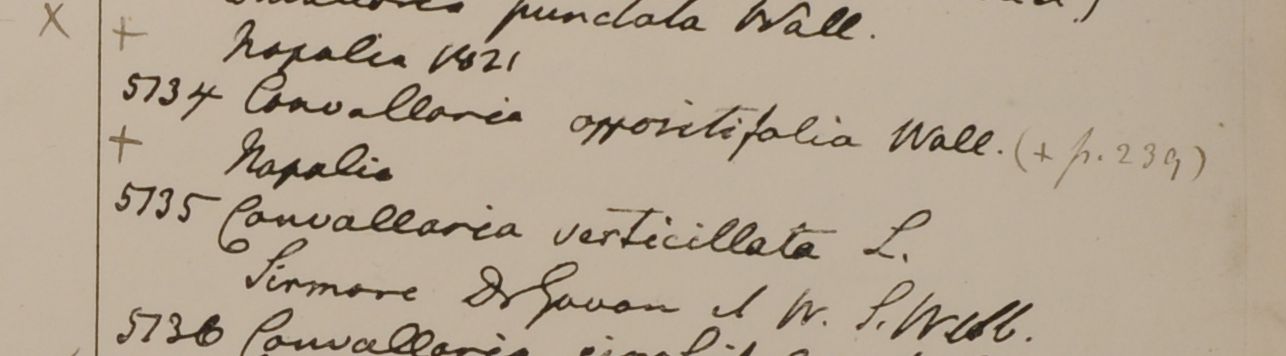 punctata Wall.
x + Napalia 1821
5134 Convallaria oppositifolia Wall. (+ p. 239)
+ Napalia
5135 Convallaria verticillata L.
Sirmore Dr Govan & W. S. Webb.
5136 Convallaria